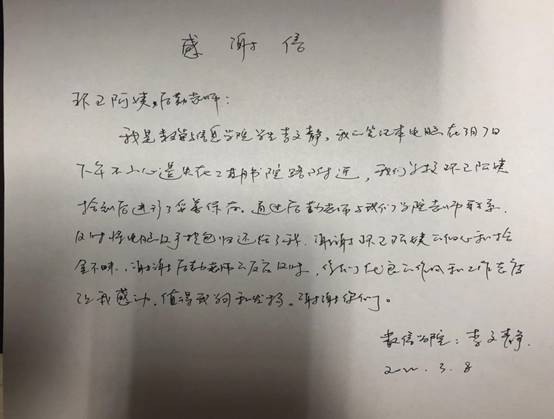 感谢信
环卫阿姨、后勤老师：
我是数学与信息学院学生李文静，我的笔记本电脑在3月7日
下午不小心遗失在二期书院路附近，我们学校环卫阿姨
捡到后进行了妥善保存。通过后勤老师与我们学院老师联系，
及时将电脑及手提包归还给了我，谢谢环卫阿姨的细心和拾
金不昧，谢谢后勤老师的反应及时，你们优良的作风和工作态度
让我感动，值得我学习和发扬。谢谢你们。
数信学院：李文静
2022.3.8